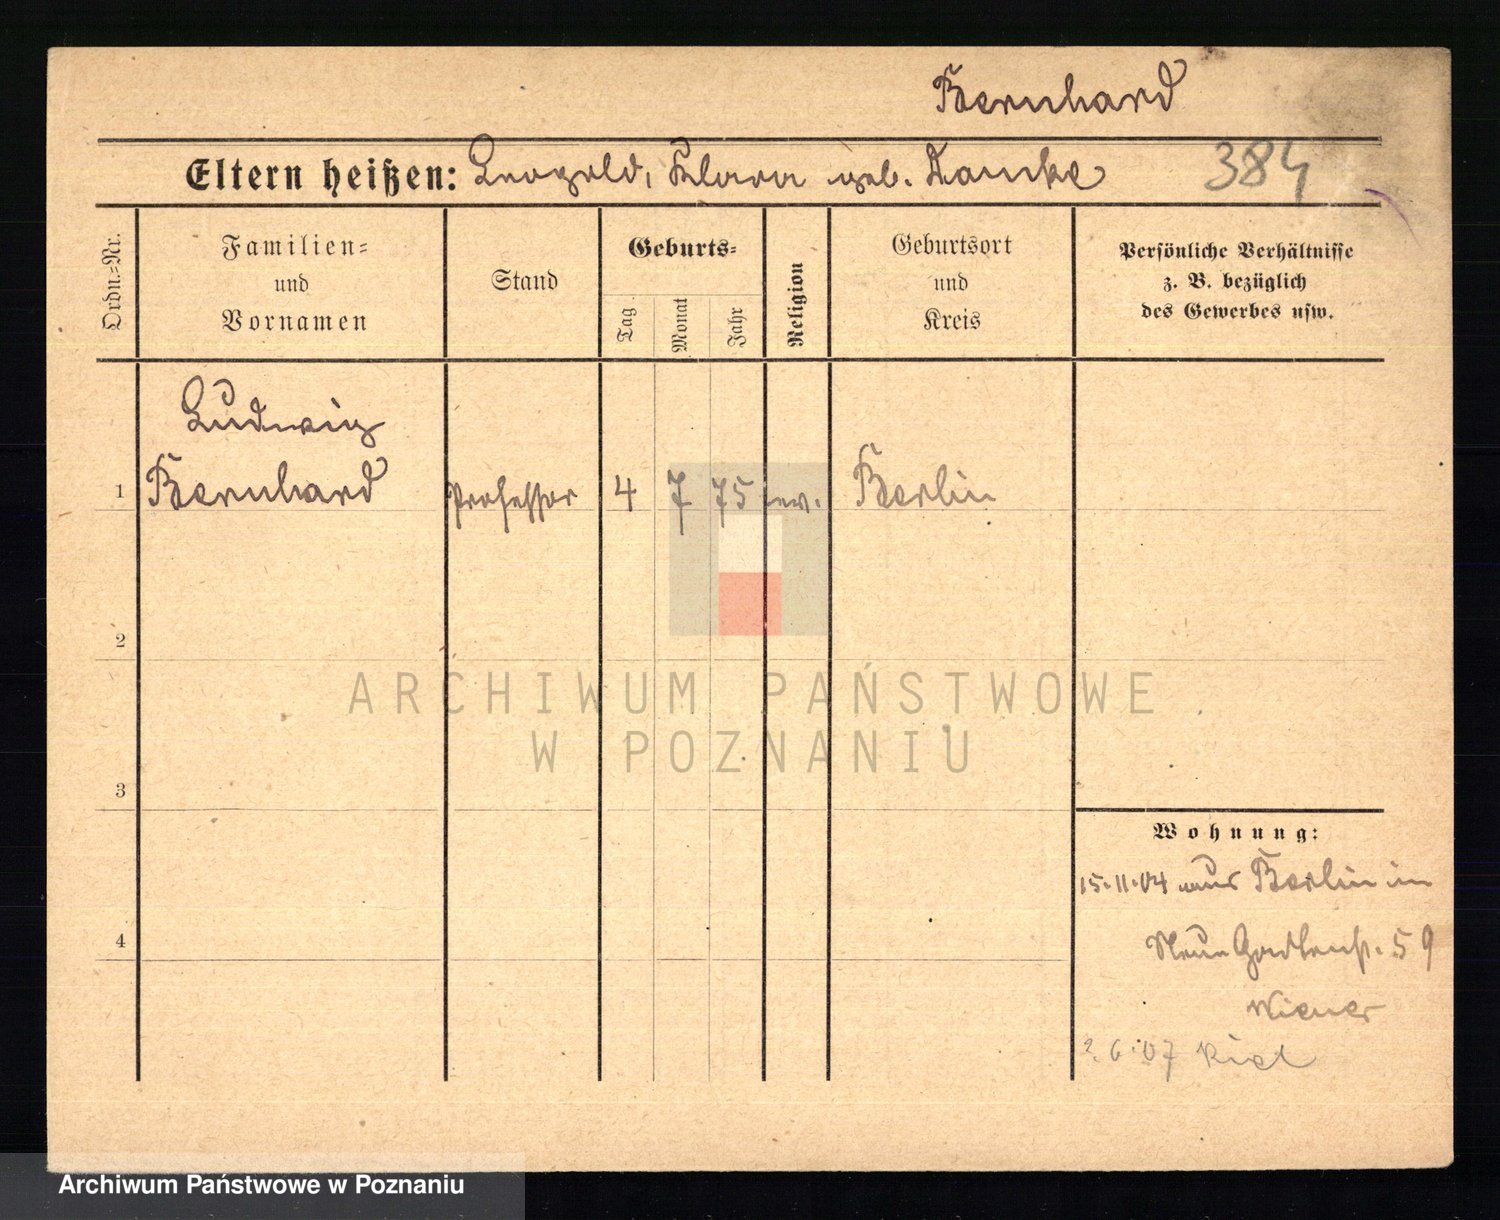 Bernhard
Eltern heißen: Leopold, Klara geb. 384
Ordn.-Nr.
Familien-
und
Vornamen
Stand
Geburts-
Tag
Monat
Jahr
Religion
Geburtsort
und
Kreis
Persönliche Verhältnisse
z. B. bezüglich
des Gewerbes usw.
Ludwig
1 Bernhard Professor 4 7 75 ev. Berlin
2
ARCHIWUM PAŃSTWOWE
W POZNANIU
3
Wohnung:
15.11.04 aus Berlin in
Neue Gartenstr. 59
4
Wiener
2.6.07 Kiel
Archiwum Państwowe w Poznaniu